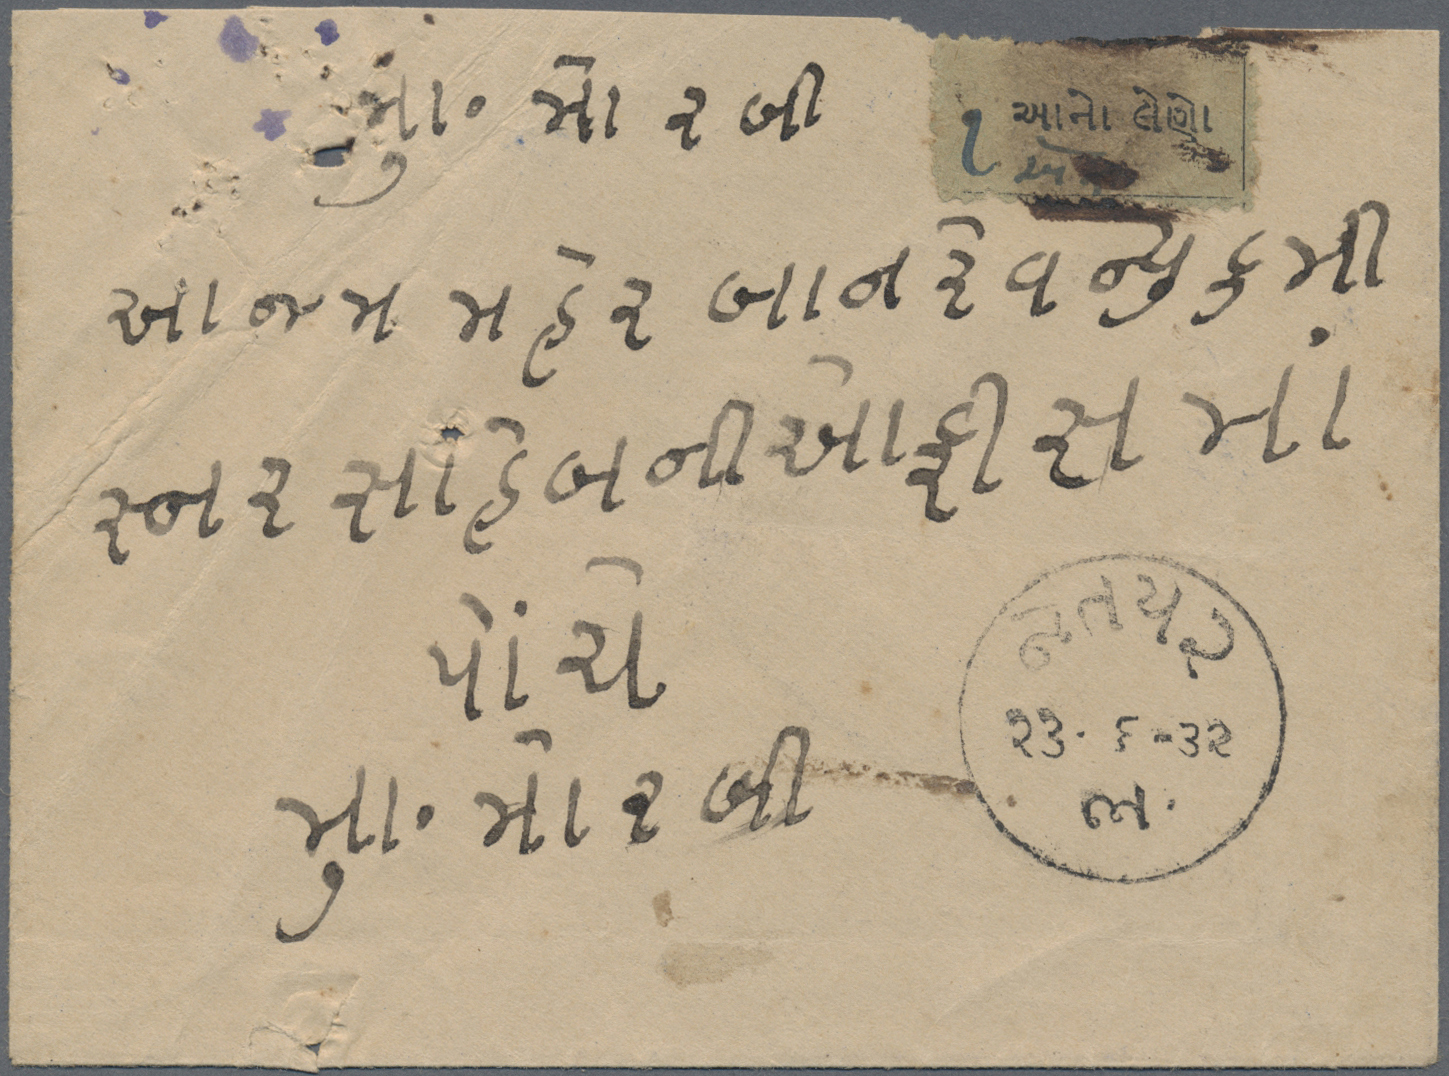 મુા. મોરબી
૧ આનો લેણો
આજમ મહેરબાન રેવન્યુ કમી
સ્નર સાહેબની ઓફીસ માં
પોંચે
મુા. મોરબી
જેતપર
૨૩-૬-૩૨